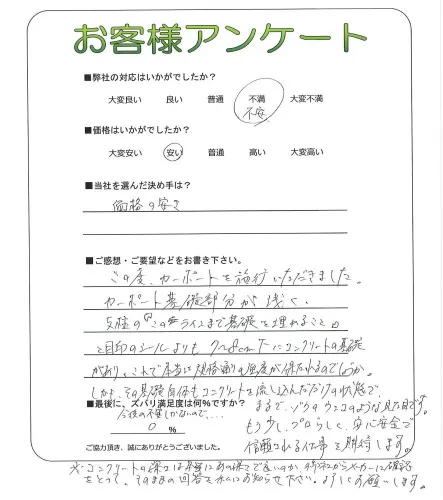 お客様アンケート
■弊社の対応はいかがでしたか？
大変良い　良い　普通　不満　大変不満
不安
■価格はいかがでしたか？
大変安い　安い　普通　高い　大変高い
■当社を選んだ決め手は？
価格の安さ
■ご感想・ご要望などをお書き下さい。
この度、カーポートを施行いただきました。
カーポート基礎部分が浅く、
支柱の「このラインまで基礎を埋めること」
と目印のシールよりも 7〜8cm下にコンクリートの基礎
があり、これで本当に規格通りの強度が保たれるのでしょうか。
しかも、その基礎自体もコンクリートを流し込んだだけの状態で、
まるで、ゾウのウンコのような見た目です。
■最後に、ズバリ満足度は何％ですか？
今後の不安しかないので....
0 ％
もう少し、プロらしく、安心安全で
信頼される仕事を期待します。
ご協力頂き、誠にありがとうございました。
※コンクリートの深さは本当にあの様で良いのか、メーカーに確認
をとって、そのままの回答を私にお知らせ下さい。ようにお願いします。